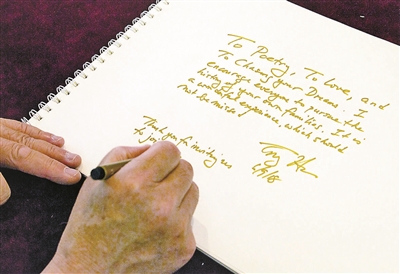 To Poetry, To Love and
To your Dreams. I
encourage everyone to pursue the
history of your own families. It is
a wonderful experience, which should
not be
Thank you for inviting us
to jo